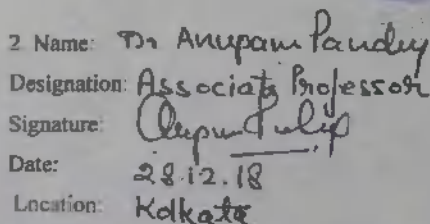 2 Name: Dr Anupam Pandey
Designation: Associate Professor
Signature:
Date: 28.12.18
Location: Kolkata